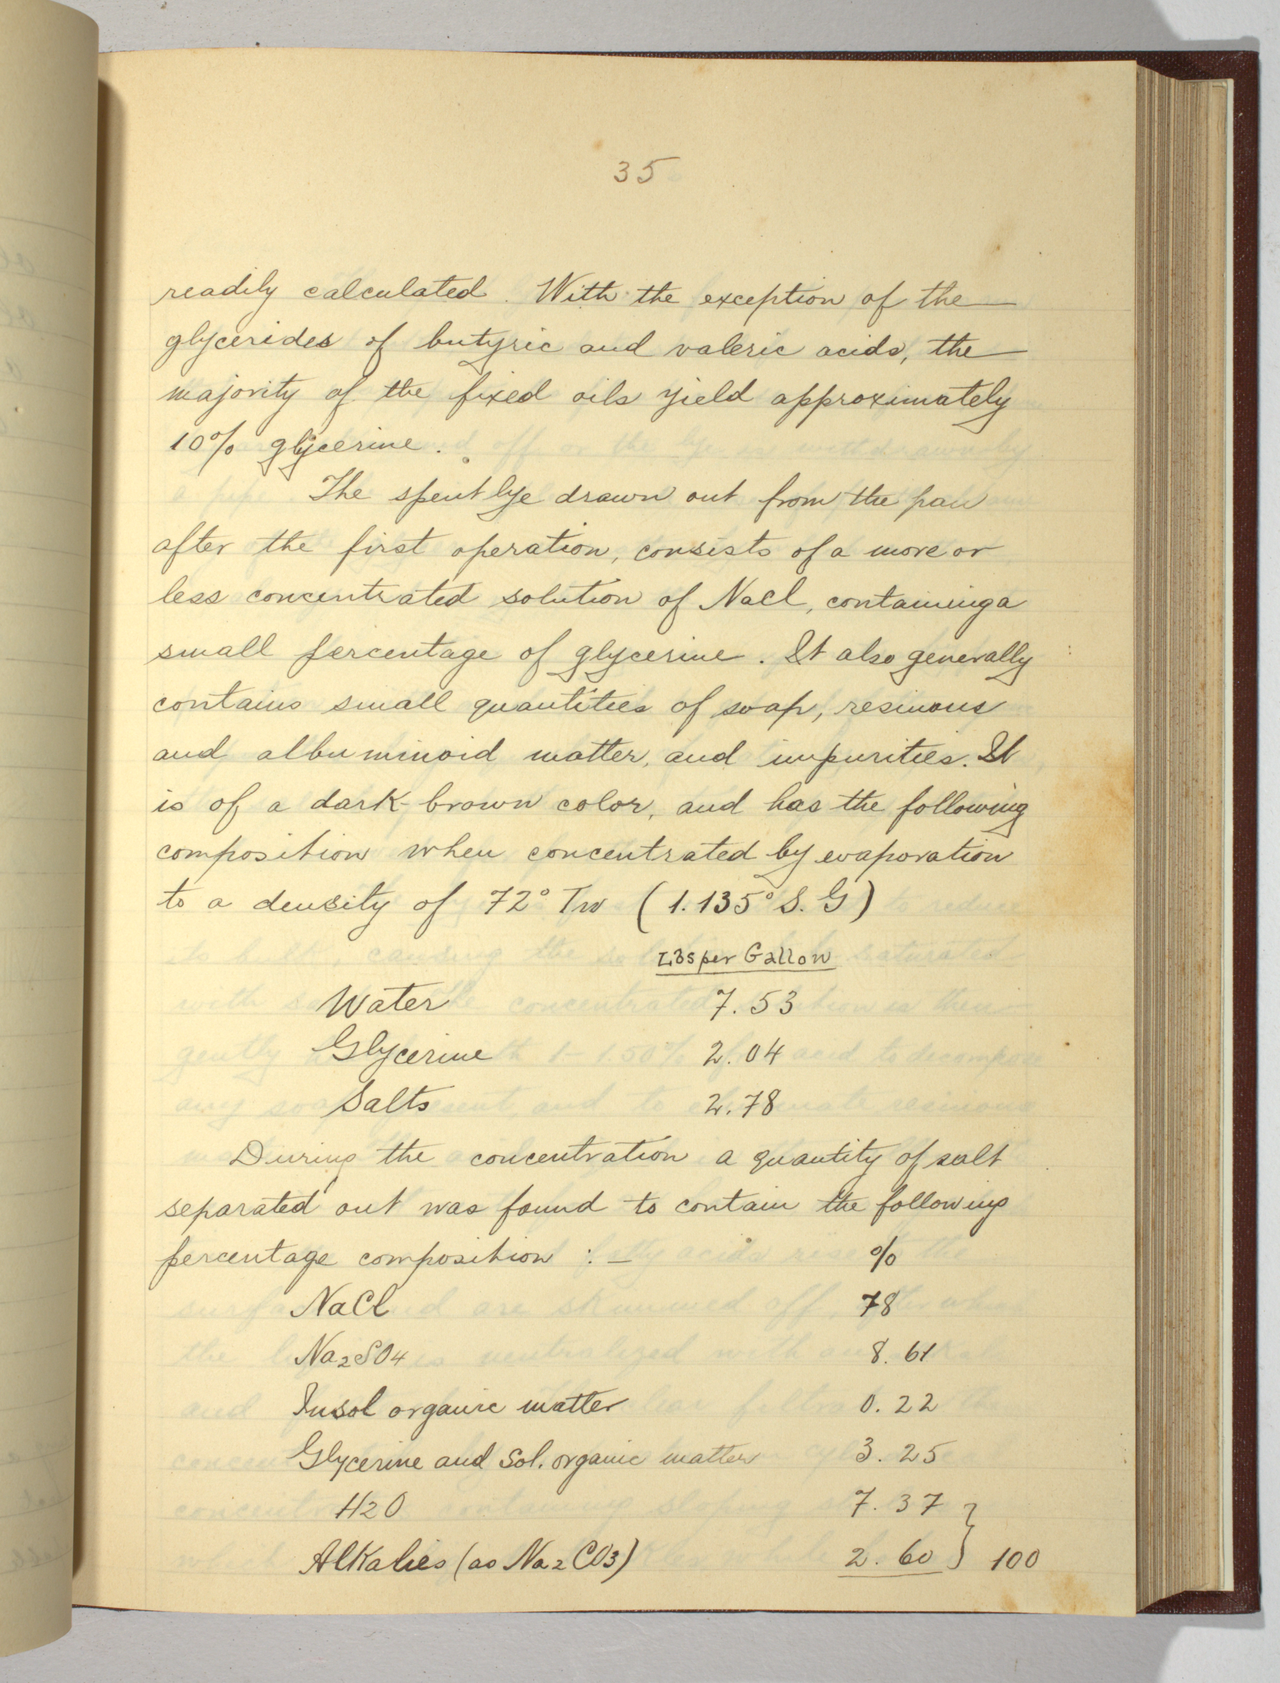 35
readily calculated. With the exception of the
glycerides of butyric and valeric acids, the
majority of the fixed oils yield approximately
10% glycerine.
The spent lye drawn out from the pan
after the first operation, consists of a more or
less concentrated solution of NaCl, containing a
small percentage of glycerine. It also generally
contains small quantities of soap, resinous
and albuminoid matter, and impurities. It
is of a dark-brown color, and has the following
composition when concentrated by evaporation
to a density of 72° Tw (1.135° S.G)
Lbs per Gallon
Water 7.53
Glycerine 2.04
Salts 2.78
During the concentration a quantity of salt
separated out was found to contain the following
percentage composition :— %
NaCl 78
Na2SO4 8.61
Insol organic matter 0.22
Glycerine and Sol. organic matter 3.25
H2O 7.37
Alkalies (as Na2CO3) 2.60 } 100